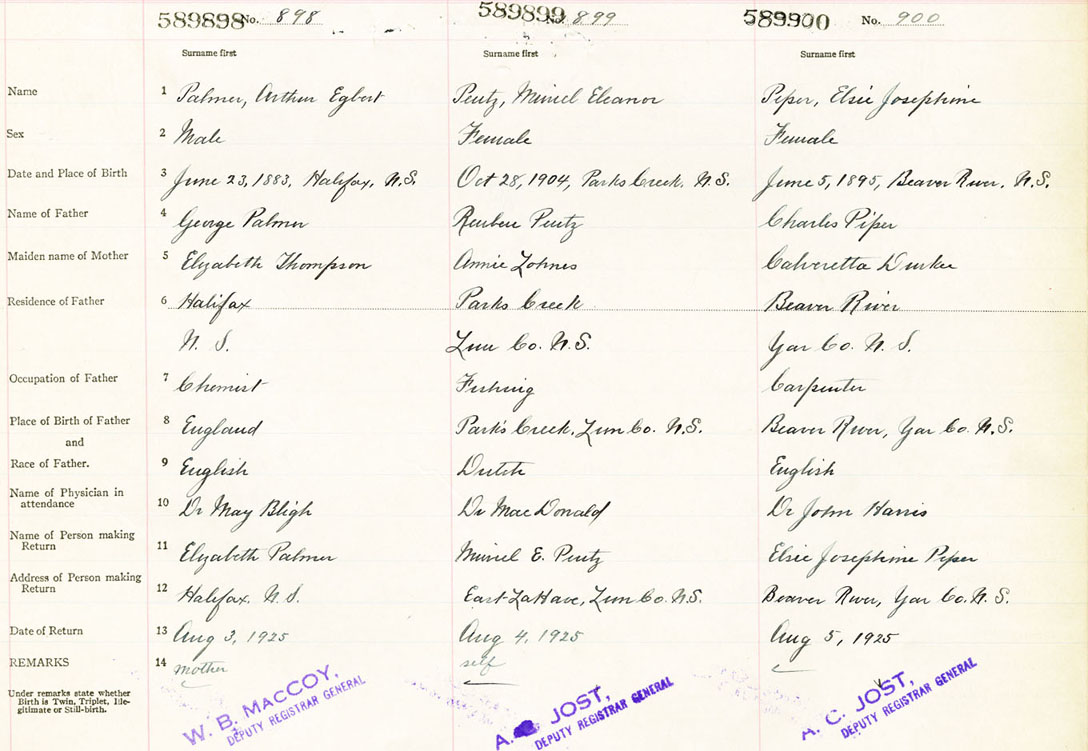 589898 No. 898
589899 No. 899
589900 No. 900
Surname first Surname first Surname first
Name 1 Palmer, Arthur Egbert Pentz, Muriel Eleanor Piper, Elsie Josephine
Sex 2 Male Female Female
Date and Place of Birth 3 June 23, 1883, Halifax, N.S. Oct 28, 1904, Parks Creek, N.S. June 5, 1895, Beaver River, N.S.
Name of Father 4 George Palmer Reuben Pentz Charles Piper
Maiden name of Mother 5 Elizabeth Thompson Annie Lohnes Calveretta Durkee
Residence of Father 6 Halifax Parks Creek Beaver River
N. S. Lun Co. N.S. Yar Co. N. S.
Occupation of Father 7 Chemist Fishing Carpenter
Place of Birth of Father 8 England Park's Creek, Lun Co. N.S. Beaver River, Yar Co. N.S.
and
Race of Father. 9 English Dutch English
Name of Physician in
attendance 10 Dr May Bligh Dr MacDonald Dr John Harris
Name of Person making
Return 11 Elizabeth Palmer Muriel E. Pentz Elsie Josephine Piper
Address of Person making
Return 12 Halifax, N.S. East LaHave, Lun Co. N.S. Beaver River, Yar Co. N.S.
Date of Return 13 Aug 3, 1925 Aug 4, 1925 Aug 5, 1925
REMARKS 14 mother self
Under remarks state whether
Birth is Twin, Triplet, Ille-
gitimate or Still-birth.
W. B. MACCOY,
DEPUTY REGISTRAR GENERAL
A. JOST,
DEPUTY REGISTRAR GENERAL
A. C. JOST,
DEPUTY REGISTRAR GENERAL